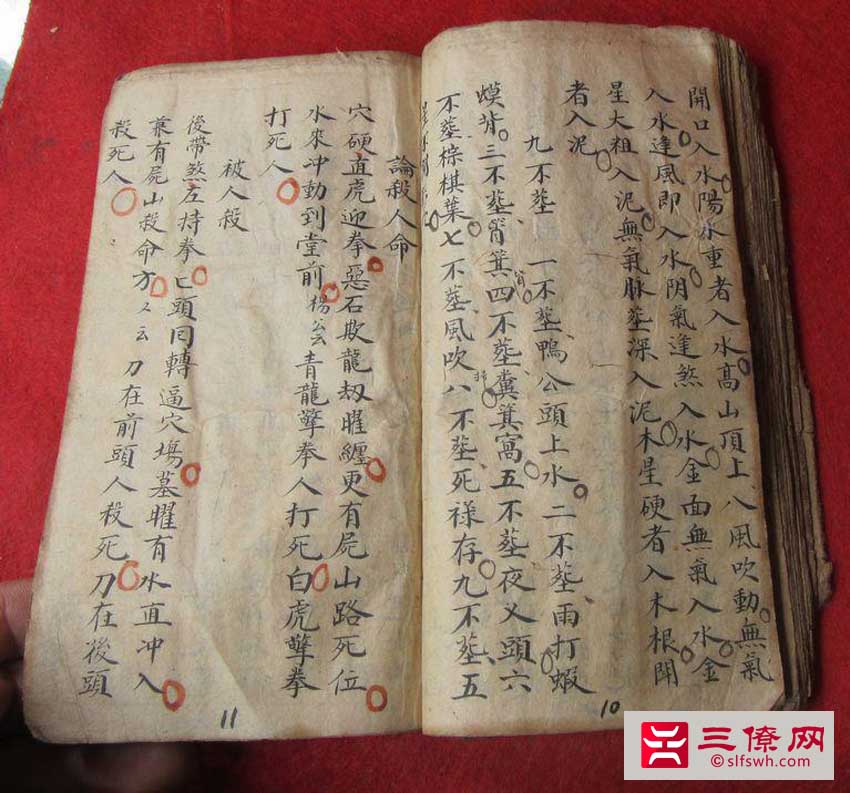 開口入水陽水重者入水高山頂上八風吹動無氣
入水逢風即入水阴氣逢煞入水金面無氣入水金
星大粗入泥無氣脉塟深入泥木星硬者入木根開
者入泥
九不塟 一不塟鴨公頭上水二不塟雨打蝦
蟆背三不塟箕四不塟糞箕窩五不塟夜乂頭六
不塟棕棋葉七不塟風吹八不塟死禄存九不塟五
論殺人命
穴硬直虎迎拳惡石欺龍刼曜纏更有屍山路死位
水來冲動到堂前楊公云青龍擎拳人打死白虎擎拳
打死人
被人殺
後帶煞左持拳亡頭囘轉逼穴塲墓曜有水直冲入
兼有屍山殺命方又云刀在前頭人殺死刀在後頭
殺死人
10
11
三僚网
slfswh.com